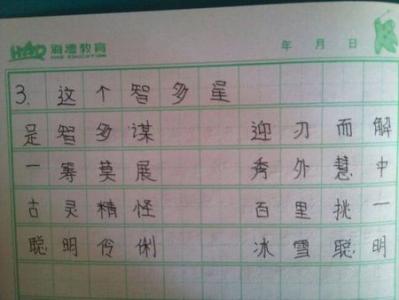 教育
年 月 日
3. 这个智多星
足智多谋 迎刃而解
一筹莫展 秀外慧中
古灵精怪 百里挑一
聪明伶俐 冰雪聪明